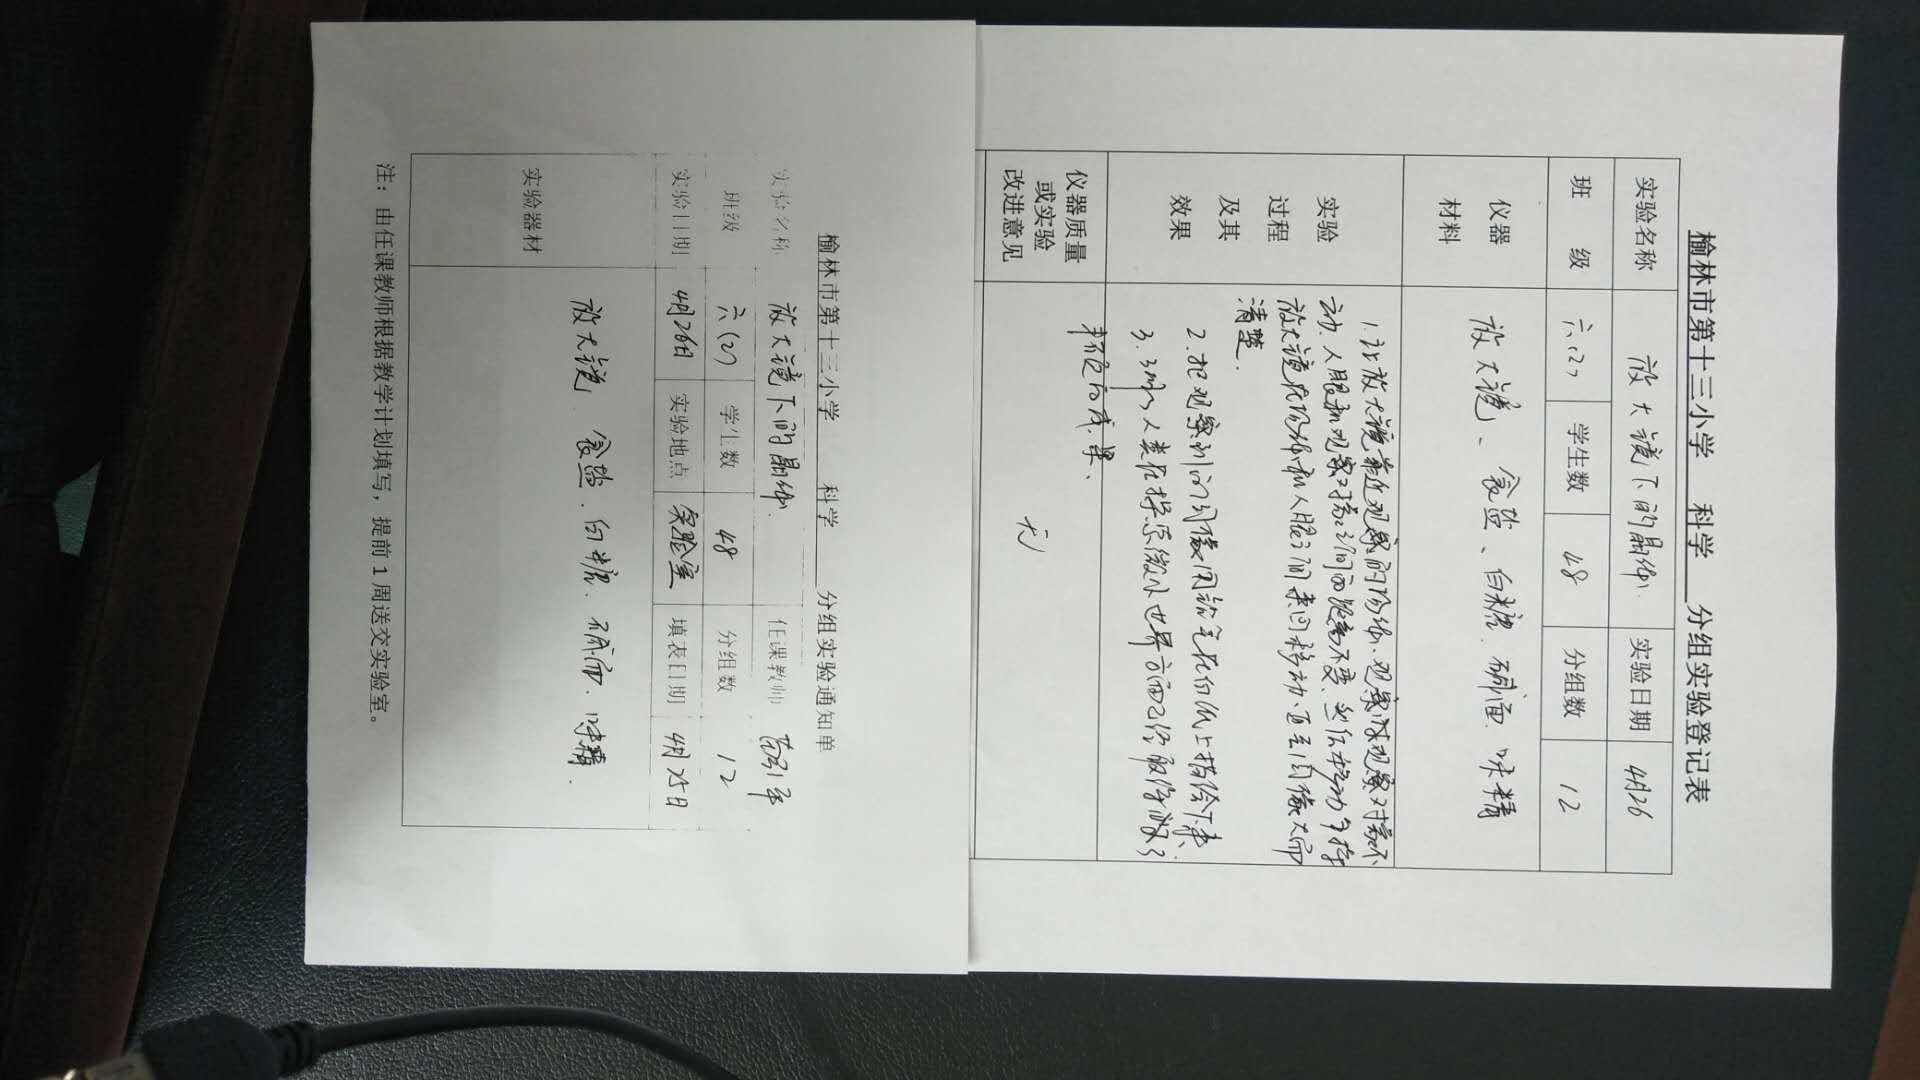 榆林市第十三小学 科学 分组实验登记表
实验名称 放大镜下的晶体 实验日期 4月26
班 级 六(2) 学生数 48 分组数 12
仪器材料 放大镜、食盐、白糖、碱面、味精
实验过程及其效果
1.让放大镜靠近观察的物体,观察时观察对象不
动,人眼和观察对象之间的距离不变,
放大镜在物体和人眼之间来回移动,直至图像大而
清楚.
2.把观察到的图像用铅笔在白纸上描绘下来.
3.了解人类在探索微小世界方面已经取得
的成果.
仪器质量或实验改进意见 无
榆林市第十三小学 科学 分组实验通知单
实验名称 放大镜下的晶体. 任课教师
班级 六(2) 学生数 48 分组数 12
实验日期 4月26日 实验地点 实验室 填表日期 4月25日
实验器材 放大镜、食盐、白糖、碱面、味精.
注:由任课教师根据教学计划填写,提前1周送交实验室。